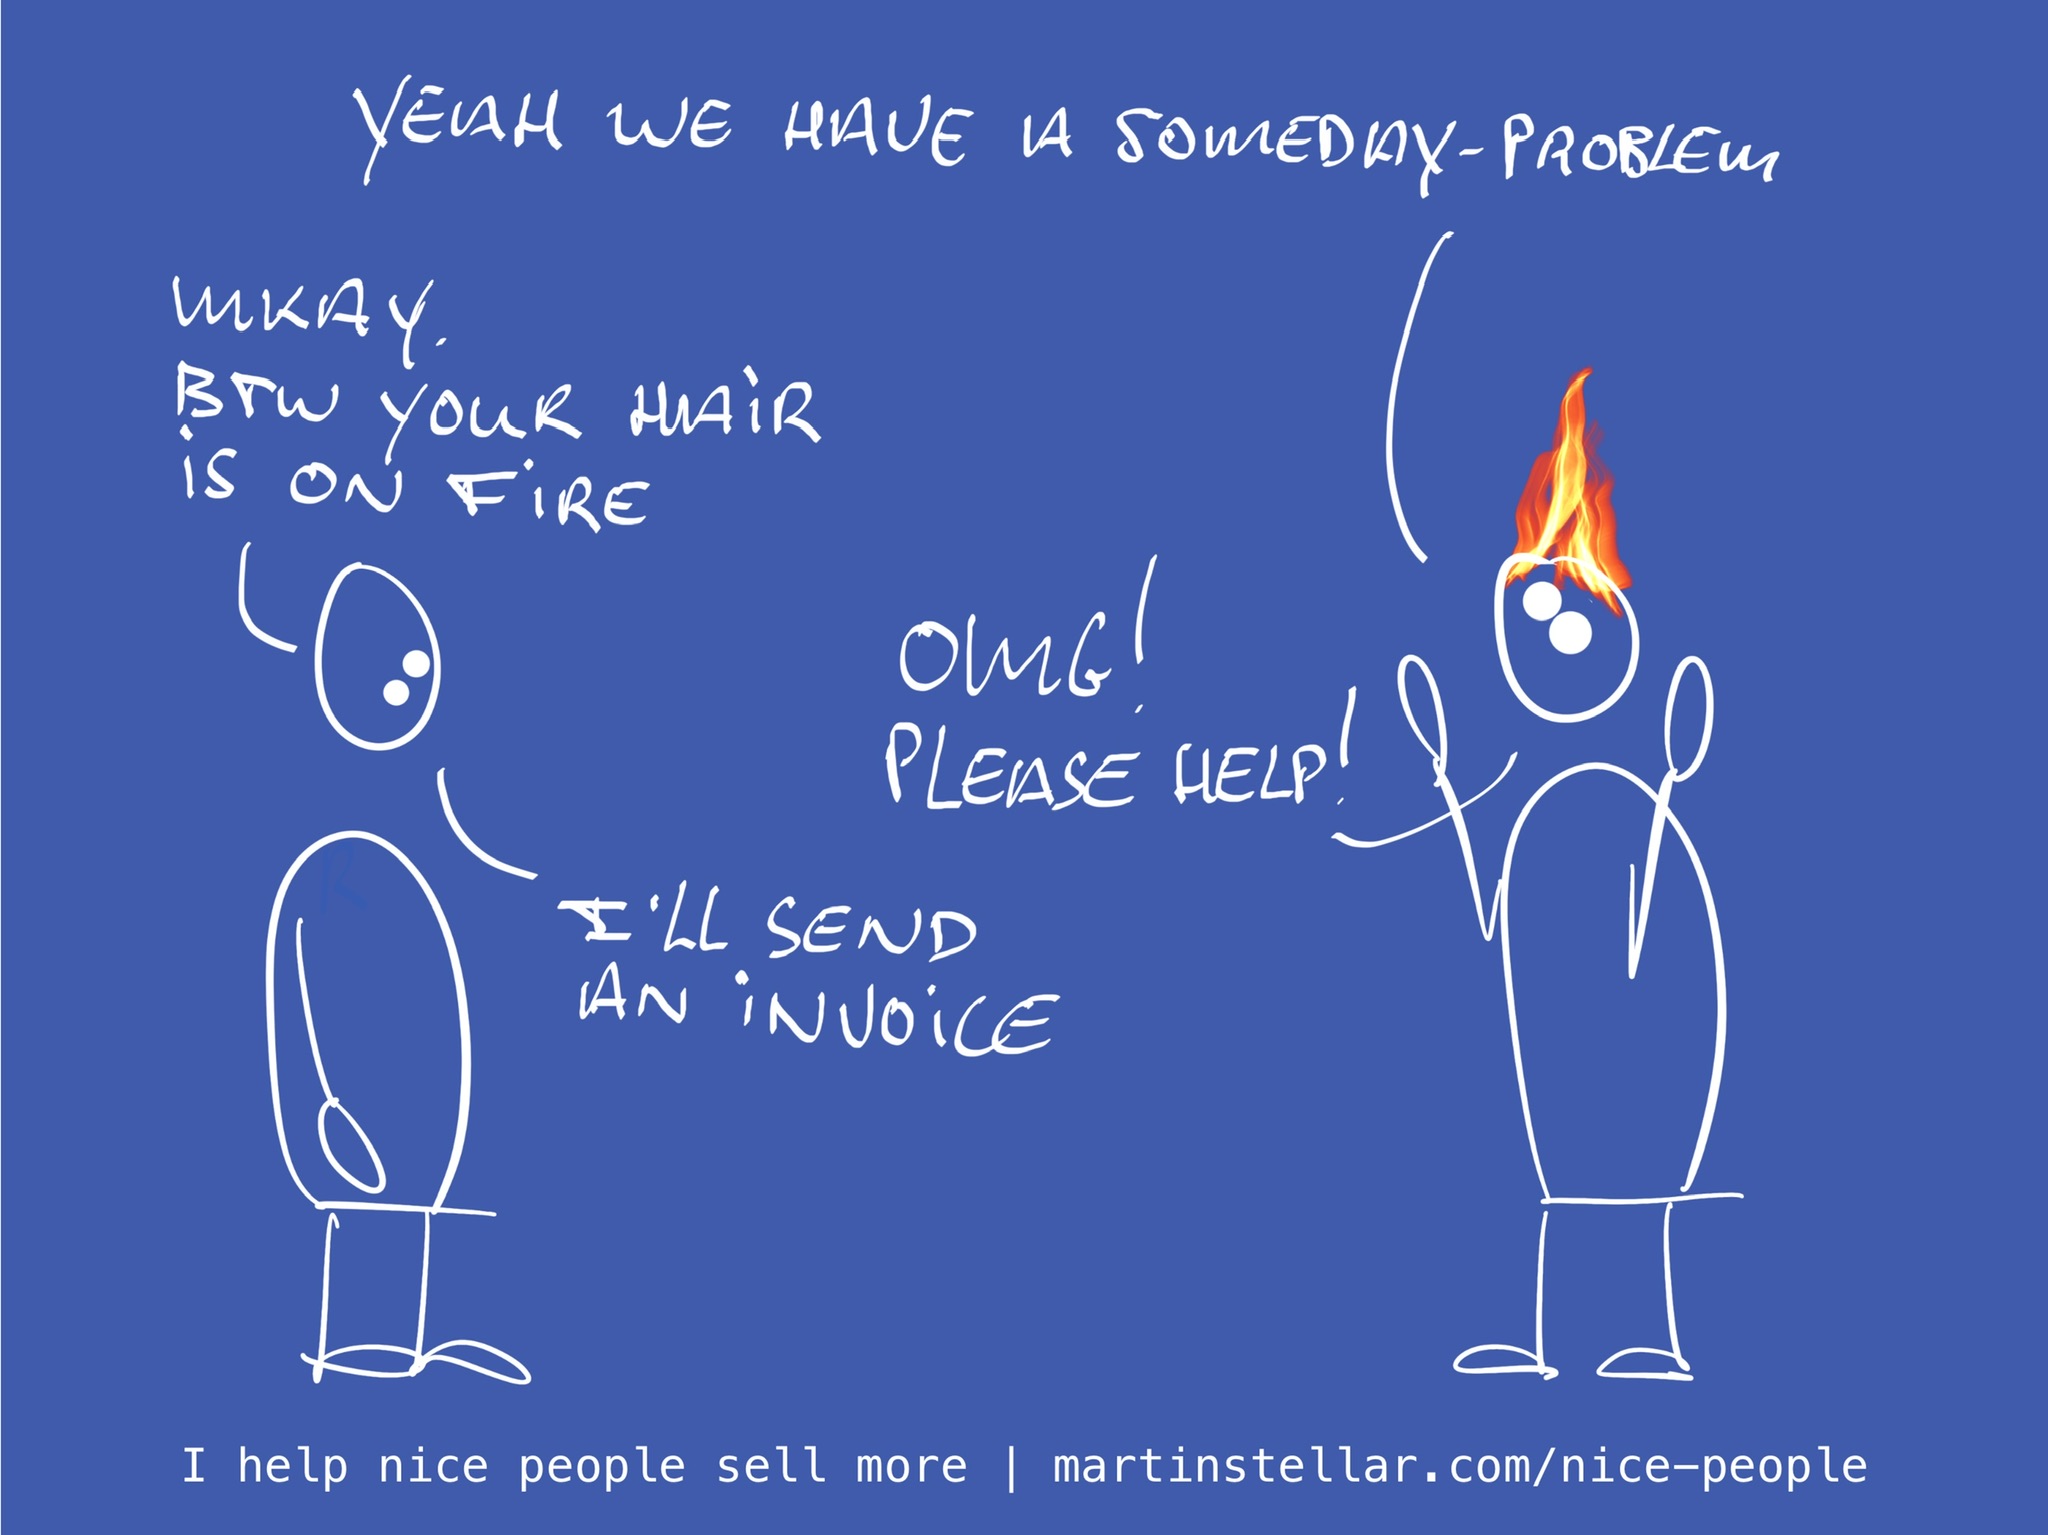 YEAH WE HAVE A SOMEDAY-PROBLEM
MKAY.
BTW YOUR HAIR
IS ON FIRE
OMG!
PLEASE HELP!
I'LL SEND
AN INVOICE
R
I help nice people sell more | martinstellar.com/nice-people